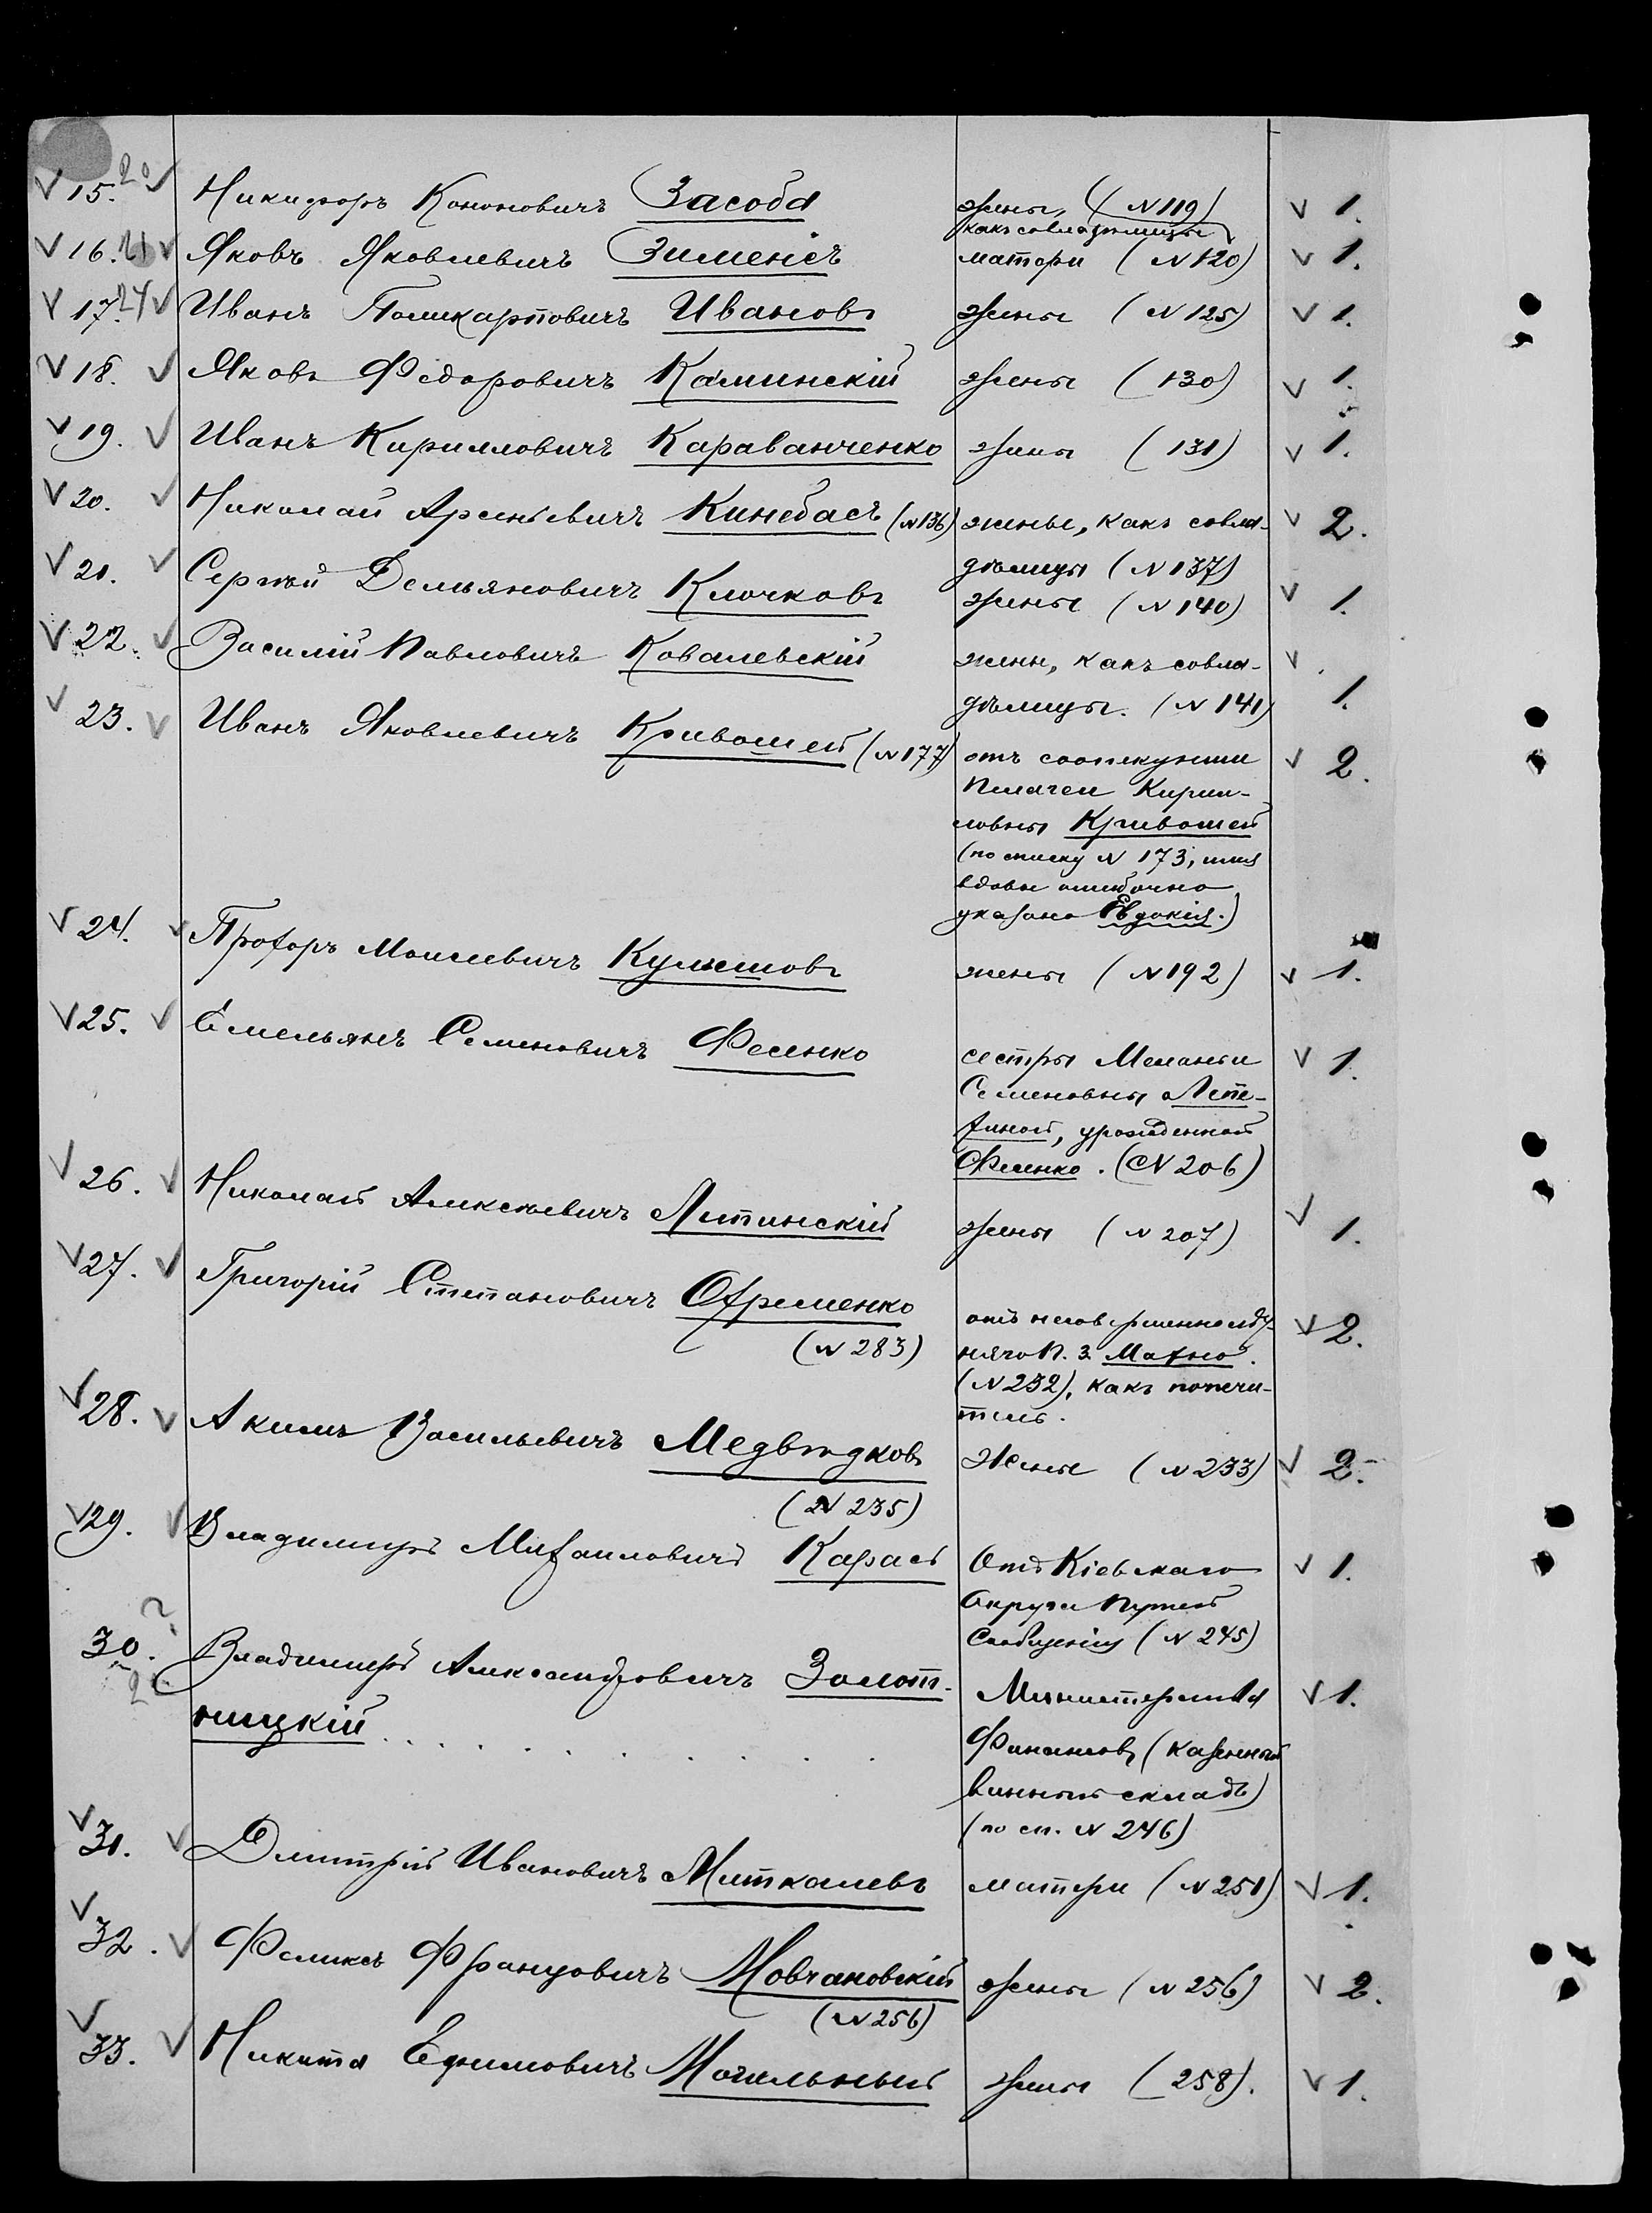 15. 20 Никифоръ Кононовичъ Засоба жены, (N 119) 1.
какъ совладѣлицы
16. 21 Яковъ Яковлевичъ Зименсъ матери (N 120) 1.
17. 24 Иванъ Поликарповичъ Ивановъ жены (N 125) 1.
18. Яковъ Федоровичъ Каминскій жены (130) 1.
19. Иванъ Кирилловичъ Караванченко жены (131) 1.
20. Николай Арсеньевичъ Кинебасъ (N 136) жены, какъ совла- 2.
дѣлицы (N 137)
21. Сергѣй Демьяновичъ Клочковъ жены (N 140) 1.
22. Василій Павловичъ Ковалевскій жены, какъ совла-
дѣлицы. (N 141) 1.
23. Иванъ Яковлевичъ Кривошей (N 177) отъ соопекунши 2.
Пелагеи Кирил-
ловны Кривошей
(по списку N 173, имя
вдовы ошибочно
указано Евдокія.)
24. Прохоръ Моисеевичъ Кулешовъ жены (N 192) 1.
25. Емельянъ Семеновичъ Фесенко сестры Меланьи 1.
Семеновны Лепе-
хиной, урожденной
Фесенко. (N 206)
26. Николай Алексѣевичъ Летинскій жены (N 207) 1.
27. Григорій Степановичъ Охременко отъ несовершеннолѣт- 2.
(N 283) няго П. З. Махно.
(N 232), какъ попечи-
тель.
28. Акимъ Васильевичъ Медвѣдковъ жены (N 233) 2.
(N 235)
29. Владимиръ Михаиловичъ Карась Отъ Кіевскаго 1.
Округа Путей
Сообщенія (N 245)
30. ? Владимиръ Александровичъ Золот- Министерства 1.
2
ницкій . . . . . . . . . Финансовъ, (казенный
винный складъ)
(по сп. N 246)
31. Дмитрій Ивановичъ Миткалевъ матери (N 251) 1.
32. Феликсъ Францовичъ Мовчановскій жены (N 256) 2.
(N 256)
33. Никита Ефимовичъ Могильный жены (258). 1.